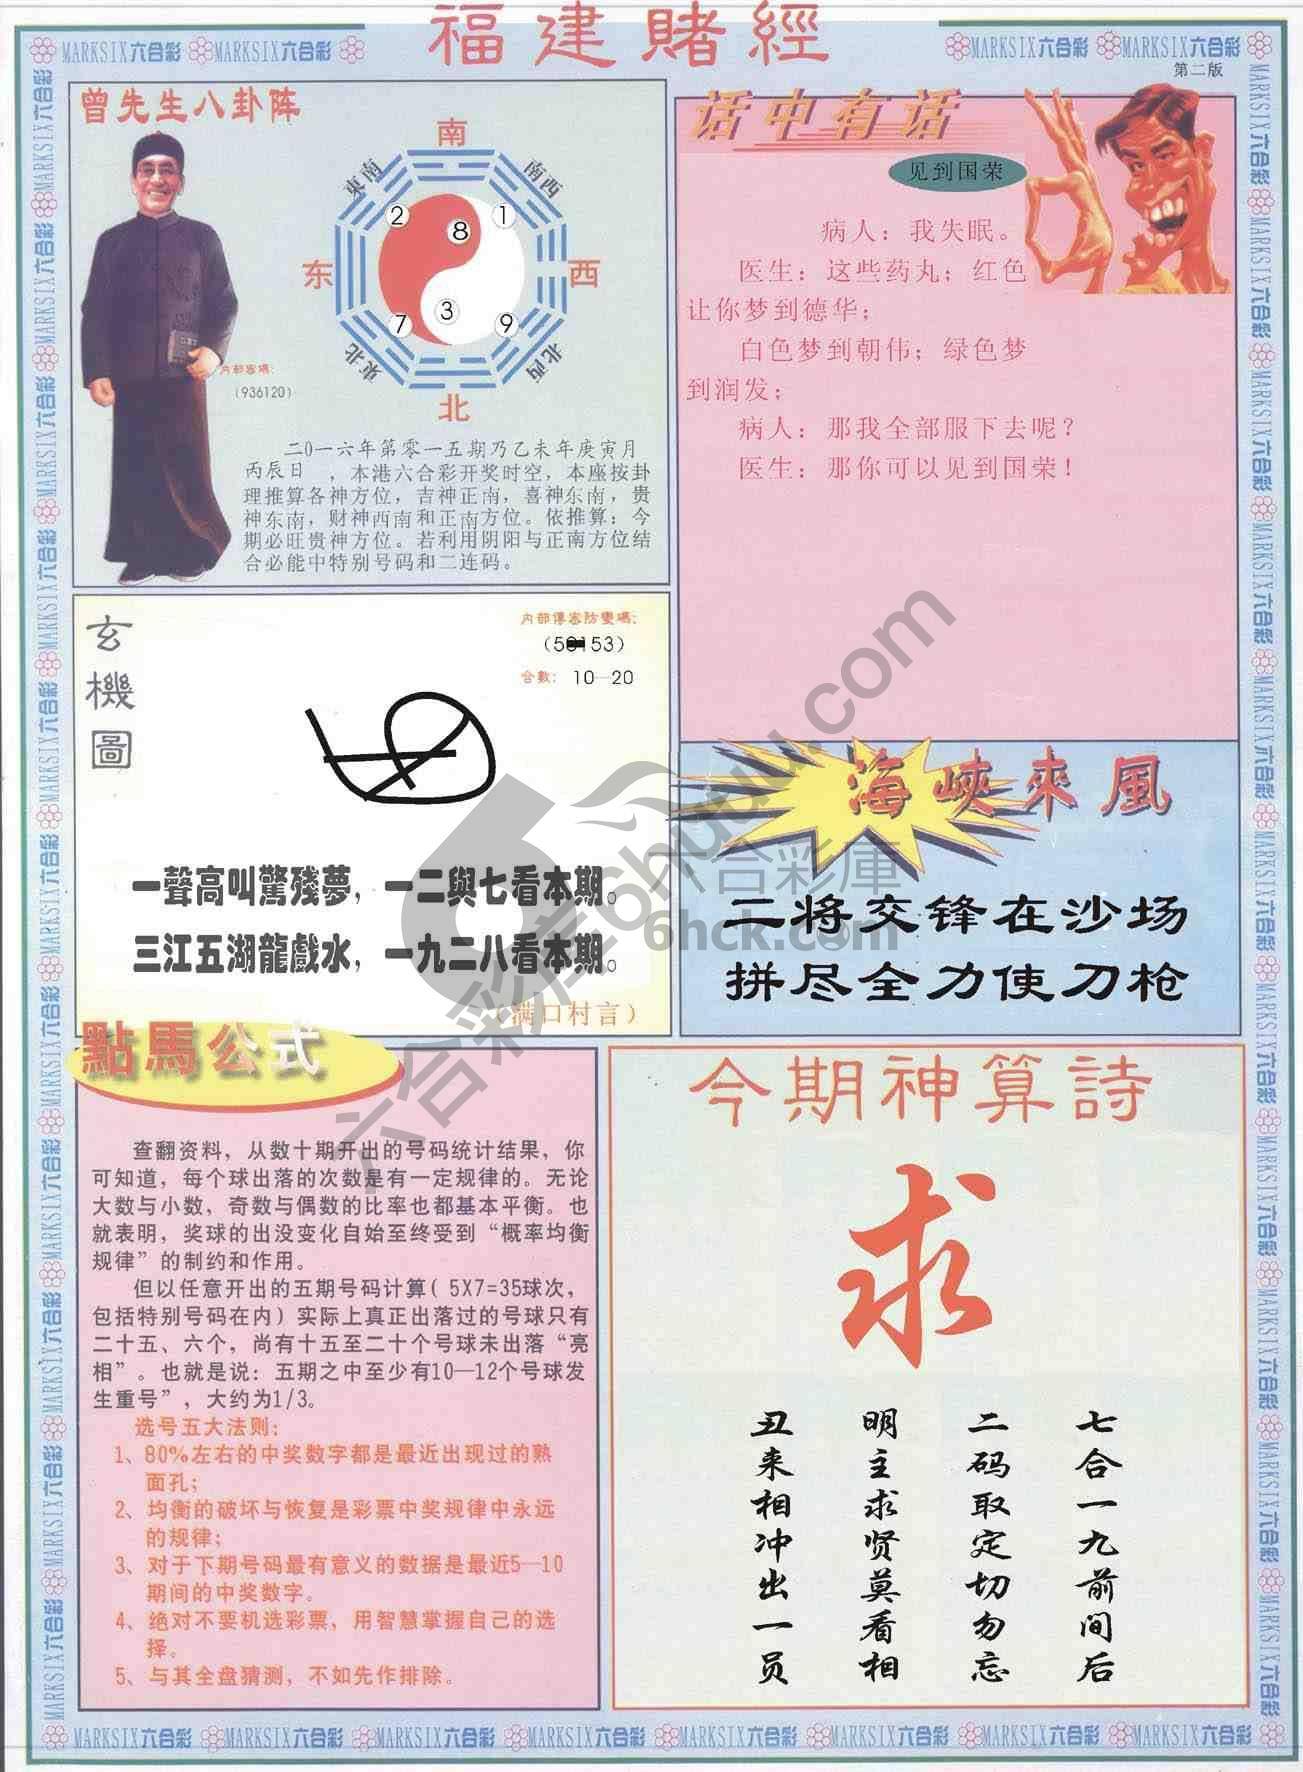 福建賭經
MARKSIX六合彩 MARKSIX六合彩
MARKSIX六合彩 MARKSIX六合彩
第二版
曾先生八卦阵
南
東南
南西
2
8
1
东
西
7
3
9
東北
北西
北
内部密碼:
(936120)
二0一六年第零一五期乃乙未年庚寅月
丙辰日 ，本港六合彩开奖时空，本座按卦
理推算各神方位，吉神正南，喜神东南，贵
神东南，财神西南和正南方位。依推算：今
期必旺贵神方位。若利用阴阳与正南方位结
合必能中特别号码和二连码。
话中有话
见到国荣
病人：我失眠。
医生：这些药丸；红色
让你梦到德华；
白色梦到朝伟；绿色梦
到润发；
病人：那我全部服下去呢？
医生：那你可以见到国荣！
玄機圖
合數： 10—20
一聲高叫驚殘夢，一二與七看本期。
三江五湖龍戲水，一九二八看本期。
（满口村言）
海峽來風
二将交锋在沙场
拼尽全力使刀枪
六合彩庫
6hck.com
點馬公式
查翻资料，从数十期开出的号码统计结果，你
可知道，每个球出落的次数是有一定规律的。无论
大数与小数，奇数与偶数的比率也都基本平衡。也
就表明，奖球的出没变化自始至终受到“概率均衡
规律”的制约和作用。
但以任意开出的五期号码计算( 5X7=35球次，
包括特别号码在内）实际上真正出落过的号球只有
二十五、六个，尚有十五至二十个号球未出落“亮
相”。也就是说：五期之中至少有10—12个号球发
生重号”，大约为1/3。
选号五大法则：
1、80%左右的中奖数字都是最近出现过的熟
面孔；
2、均衡的破坏与恢复是彩票中奖规律中永远
的规律；
3、对于下期号码最有意义的数据是最近5—10
期间的中奖数字。
4、绝对不要机选彩票，用智慧掌握自己的选
择。
5、与其全盘猜测，不如先作排除。
今期神算詩
求
七合一九前间后
二码取定切勿忘
明主求贤莫看相
丑来相冲出一员
MARKSIX六合彩 MARKSIX六合彩 MARKSIX六合彩 MARKSIX六合彩 MARKSIX六合彩 MARKSIX六合彩 MARKSIX六合彩 MARKSIX六合彩